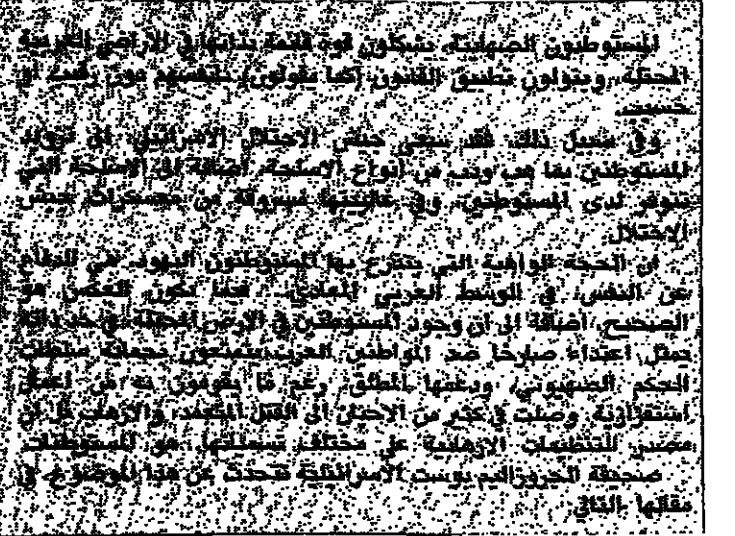 المستوطنون الصهاينة، يشكلون قوة قائمة بذاتها في الاراضي العربية
المحتلة، ويتولون تطبيق القانون (كما يقولون) بانفسهم دون رقيب او
حسيب.
وفي سبيل ذلك، فقد سعى جيش الاحتلال الاسرائيلي، الى تزويد
المستوطنين بما هب ودب من أنواع الاسلحة، اضافة الى الاسلحة التي
تتوفر لدى المستوطنين، وفي غالبيتها مسروقة من معسكرات جيش
الاحتلال.
ان الحجة الواهية التي يتذرع بها المستوطنون اليهود، هي الدفاع
عن النفس، في الوسط العربي المعادي.. فيما يكون العكس هو
الصحيح، اضافة الى ان وجود المستوطنين في الارض المحتلة بحد ذاته
يمثل اعتداء صارخا ضد المواطنين العرب، يتمتعون بحماية سلطات
الحكم الصهيوني، ودعمها المطلق، رغم ما يقومون به من اعمال
استفزازية، وصلت في كثير من الاحيان الى القتل المتعمد، والارهاب بل ان
مصدر التنظيمات الارهابية على مختلف تسمياتها، هو المستوطنات.
صحيفة الجروزاليم بوست الاسرائيلية تتحدث عن هذا الموضوع، في
مقالها التالي: